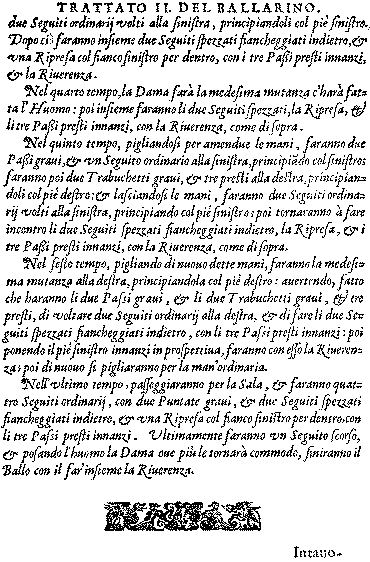 TRATTATO II. DEL BALLARINO.
due Seguiti ordinarij volti alla sinistra, principiandoli col piè sinistro.
Dopo ciò faranno insieme due Seguiti spezzati fiancheggiati indietro, &
vna Ripresa col fianco sinistro per dentro, con i tre Passi presti innanzi,
& la Riuerenza.
Nel quarto tempo, la Dama farà la medesima mutanza c'harà fat-
ta l'Huomo: poi insieme faranno li due Seguiti spezzati, la Ripresa, &
li tre Passi presti innanzi, con la Riuerenza, come di sopra.
Nel quinto tempo, pigliandosi per amendue le mani, faranno due
Passi graui, & vn Seguito ordinario alla sinistra, principiãdo col sinistro:
faranno poi due Trabuchetti graui, & tre presti alla destra, principian-
doli col piè destro; & lasciandosi le mani, faranno due Seguiti ordina-
rij volti alla sinistra, principiando col piè sinistro: poi tornaranno à fare
incontro li due Seguiti spezzati fiancheggiati indietro, la Ripresa, & i
tre Passi presti innanzi, con la Riuerenza, come di sopra.
Nel sesto tempo, pigliando di nuouo dette mani, faranno la medesi-
ma mutanza alla destra, principiandola col piè destro: auertendo, fatto
che haranno li due Passi graui, & li due Trabuchetti graui, & tre
presti, di voltare due Seguiti ordinarij alla destra, & di fare li due Se-
guiti spezzati fiancheggiati indietro, con li tre Passi presti innanzi: poi
ponendo il piè sinistro innanzi in prospettiua, faranno con esso la Riueren-
za: poi di nuouo si pigliaranno per la man'ordinaria.
Nell'vltimo tempo, passeggiaranno per la Sala, & faranno quat-
tro Seguiti ordinarij, con due Puntate graui, & due Seguiti spezzati
fiancheggiati indietro, & vna Ripresa col fianco sinistro per dentro, con
li tre Passi presti innanzi. Vltimamente faranno vn Seguito scorso,
& posando l'huomo la Dama oue più le tornarà commodo, finiranno il
Ballo con il far'insieme la Riuerenza.
Intauo-